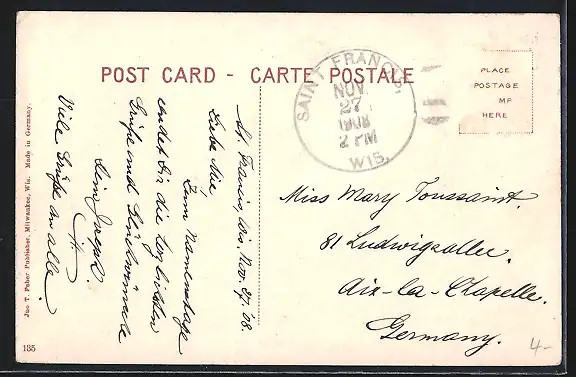 POST CARD - CARTE POSTALE
SAINT FRANCIS,
NOV
27
1908
2 PM
WIS.
PLACE
POSTAGE
MP
HERE
St. Francis, Wis. Nov. 27. '08.
Liebe Mie,
Zum Namenstage
sendet Dir die herzlichsten
Grüße und Glückwünsche
Dein Joseph.
Viele Grüße an alle.
Miss Mary Toussaint.
81 Ludwigsallee.
Aix-la-Chapelle.
Germany.
Jno T. Faber Publisher, Milwaukee, Wis. Made in Germany.
135
4-